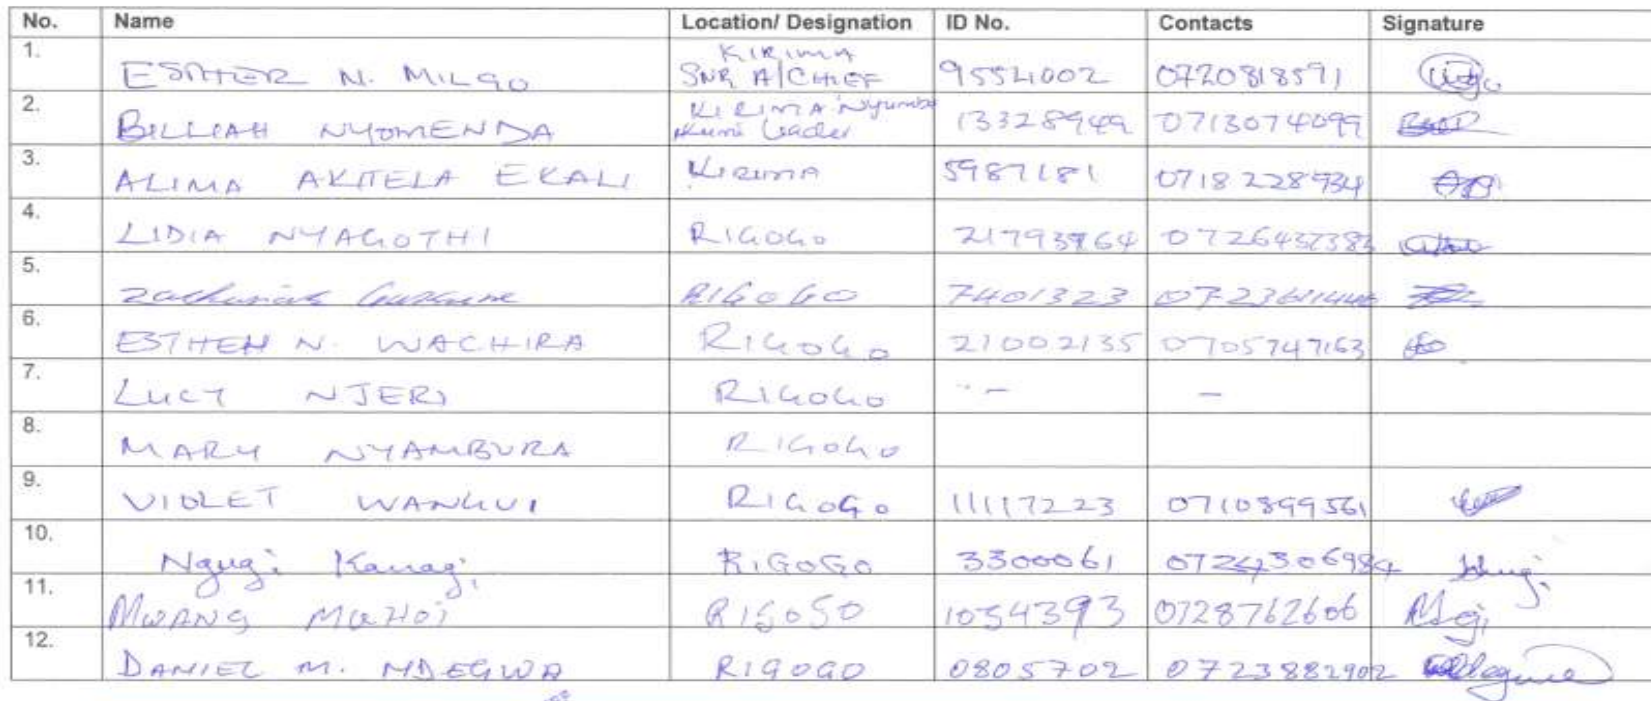 No. Name Location/ Designation ID No. Contacts Signature
1. ESTHER N. MILGO KIRIMA SNR A/CHIEF 9554002 0720818591
2. BILLIAH NYOMENDA KIRIMA Nyumba Kumi Leader 13328949 0713074099
3. ALIMA AKITELA EKALI KIRIMA 5987181 0718228934
4. LIDIA NYAGOTHI RIGOGO 21793764
5. Zachariah RIGOGO 7401323
6. ESTHER N. WACHIRA RIGOGO 21002135 0705747163
7. LUCY NJERI RIGOGO - -
8. MARY NYAMBURA RIGOGO
9. VIOLET WANGUI RIGOGO 11117223 0710899561
10. Ngugi RIGOGO 3300061
11. MWANG RIGOGO 1054393 0728762606
12. DANIEL M. NDEGWA RIGOGO 0805702 0723882902